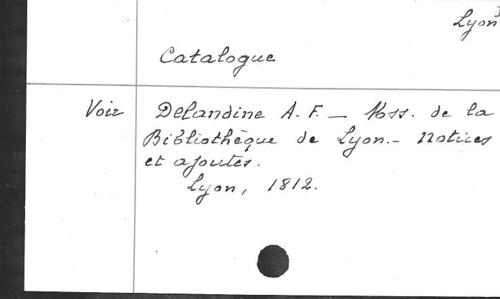 Lyon
Catalogue
Voir Delandine A. F. _ Mss. de la
Bibliothèque de Lyon._ Notices
et ajoutés.
Lyon, 1812.